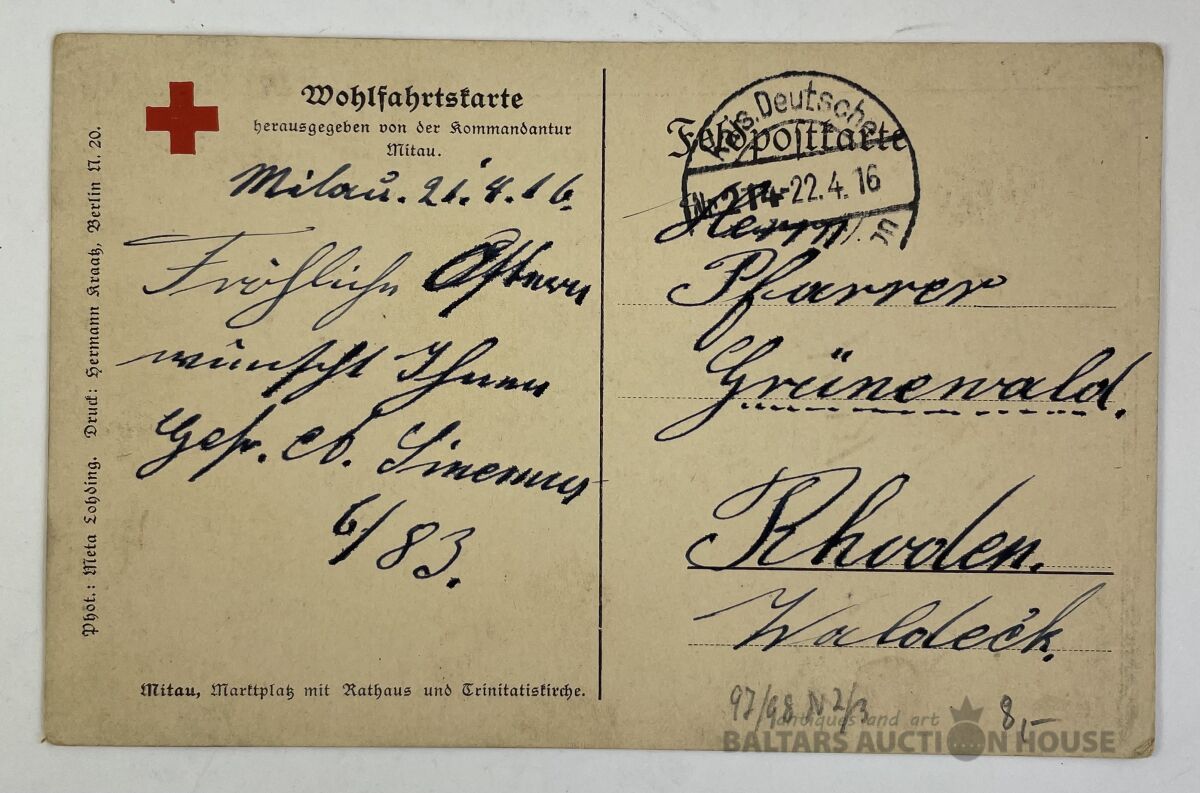 Wohlfahrtskarte
herausgegeben von der Kommandantur
Mitau.
Mitau. 21.4.16.
Fröhliche Ostern
wünscht Ihnen
Gefr.
6/83.
Mitau, Marktplatz mit Rathaus und Trinitatiskirche.
Phot.: Meta Lohding. Druck: Hermann Kraatz, Berlin N. 20.
Feldpostkarte
Kais. Deutsche
Nr. 214 -22.4.16
Herrn
Pfarrer
Grünewald.
Rhoden.
Waldeck.
97/98 N 2/3
8,-
antiques and art
BALTARS AUCTION HOUSE